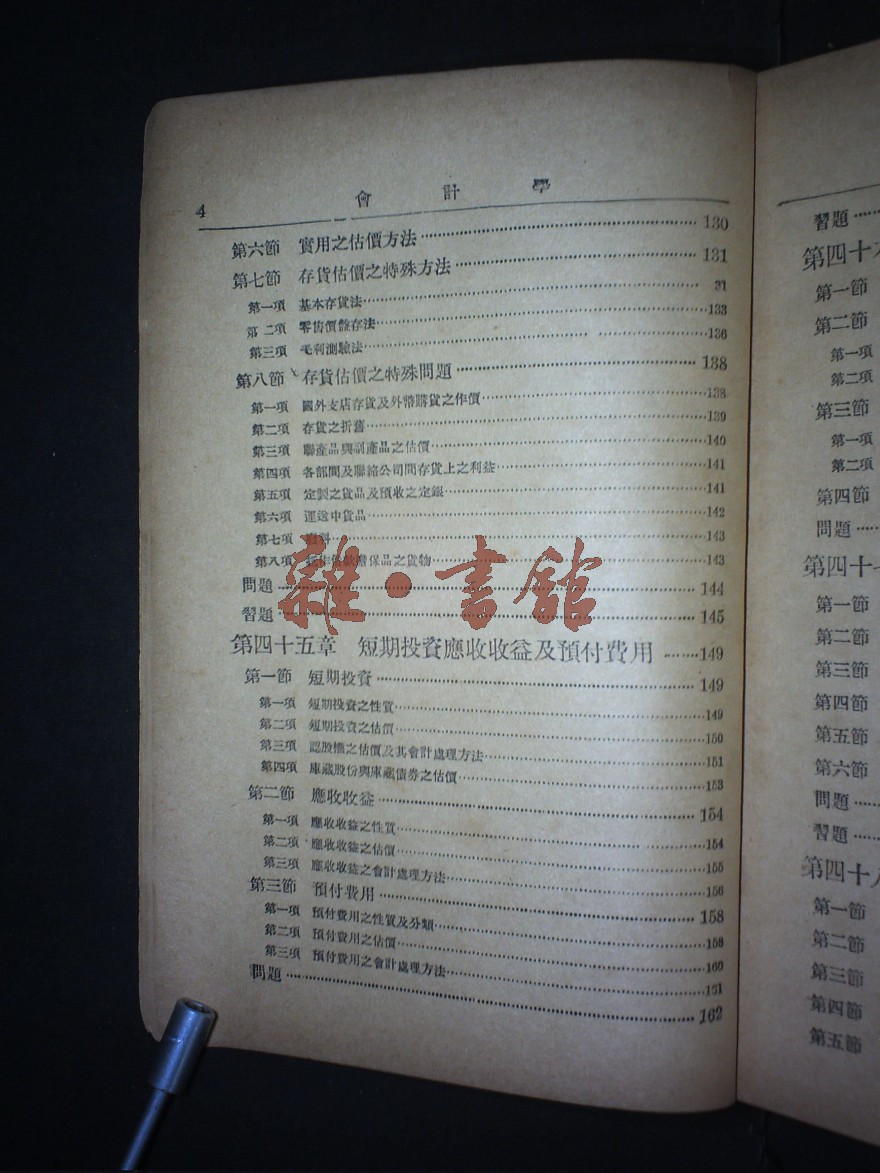 4 會計學
第六節 實用之估價方法 130
第七節 存貨估價之特殊方法 131
第一項 基本存貨法 31
第二項 零售價盤存法 133
第三項 毛利測驗法 136
第八節 存貨估價之特殊問題 138
第一項 國外支店存貨及外幣購貨之作價 138
第二項 存貨之折舊 139
第三項 聯產品與副產品之估價 140
第四項 各部間及聯絡公司間存貨上之利益 141
第五項 定製之貨品及預收之定銀 141
第六項 運送中貨品 142
第七項 料 143
第八項 保品之貨物 143
雜·書館
問題 144
習題 145
第四十五章 短期投資應收收益及預付費用 149
第一節 短期投資 149
第一項 短期投資之性質 149
第二項 短期投資之估價 150
第三項 認股權之估價及其會計處理方法 151
第四項 庫藏股份與庫藏債券之估價 153
第二節 應收收益 154
第一項 應收收益之性質 154
第二項 應收收益之估價 155
第三項 應收收益之會計處理方法 156
第三節 預付費用 158
第一項 預付費用之性質及分類 158
第二項 預付費用之估價 160
第三項 預付費用之會計處理方法 161
問題 162
習題
第四十
第一節
第二節
第一項
第二項
第三節
第一項
第二項
第四節
問題
第四十
第一節
第二節
第三節
第四節
第五節
第六節
問題
習題
第四十八
第一節
第二節
第三節
第四節
第五節